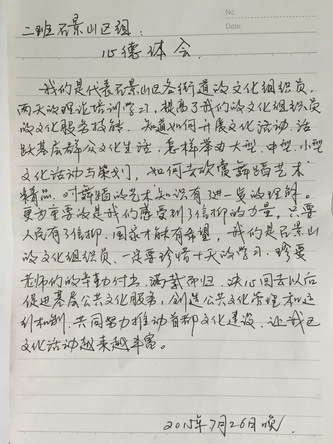 No.
Date
二班石景山区组：
心德体会.
我们是代表石景山区各街道的文化组织员,
两天的理论培训学习, 提高了我们的文化组织员
的文化服务技能. 知道如何开展文化活动. 活
跃基层群众文化生活, 怎样举办大型. 中型. 小型
文化活动与策划, 如何去欣赏舞蹈艺术
精品. 对舞蹈的艺术知识有了进一步的理解.
更为重要的是我们感受到了信仰的力量, 只要
人民有了信仰. 国家才能有希望, 我们是石景山
的文化组织员. 一定要珍惜十天的学习. 珍惜
老师们的辛勤付出. 满载而归. 决心回去以后
促进基层公共文化服务, 创造公共文化管理和运
行机制. 共同努力推动首都文化建设. 让我区
文化活动越来越丰富.
2015年7月26日晚